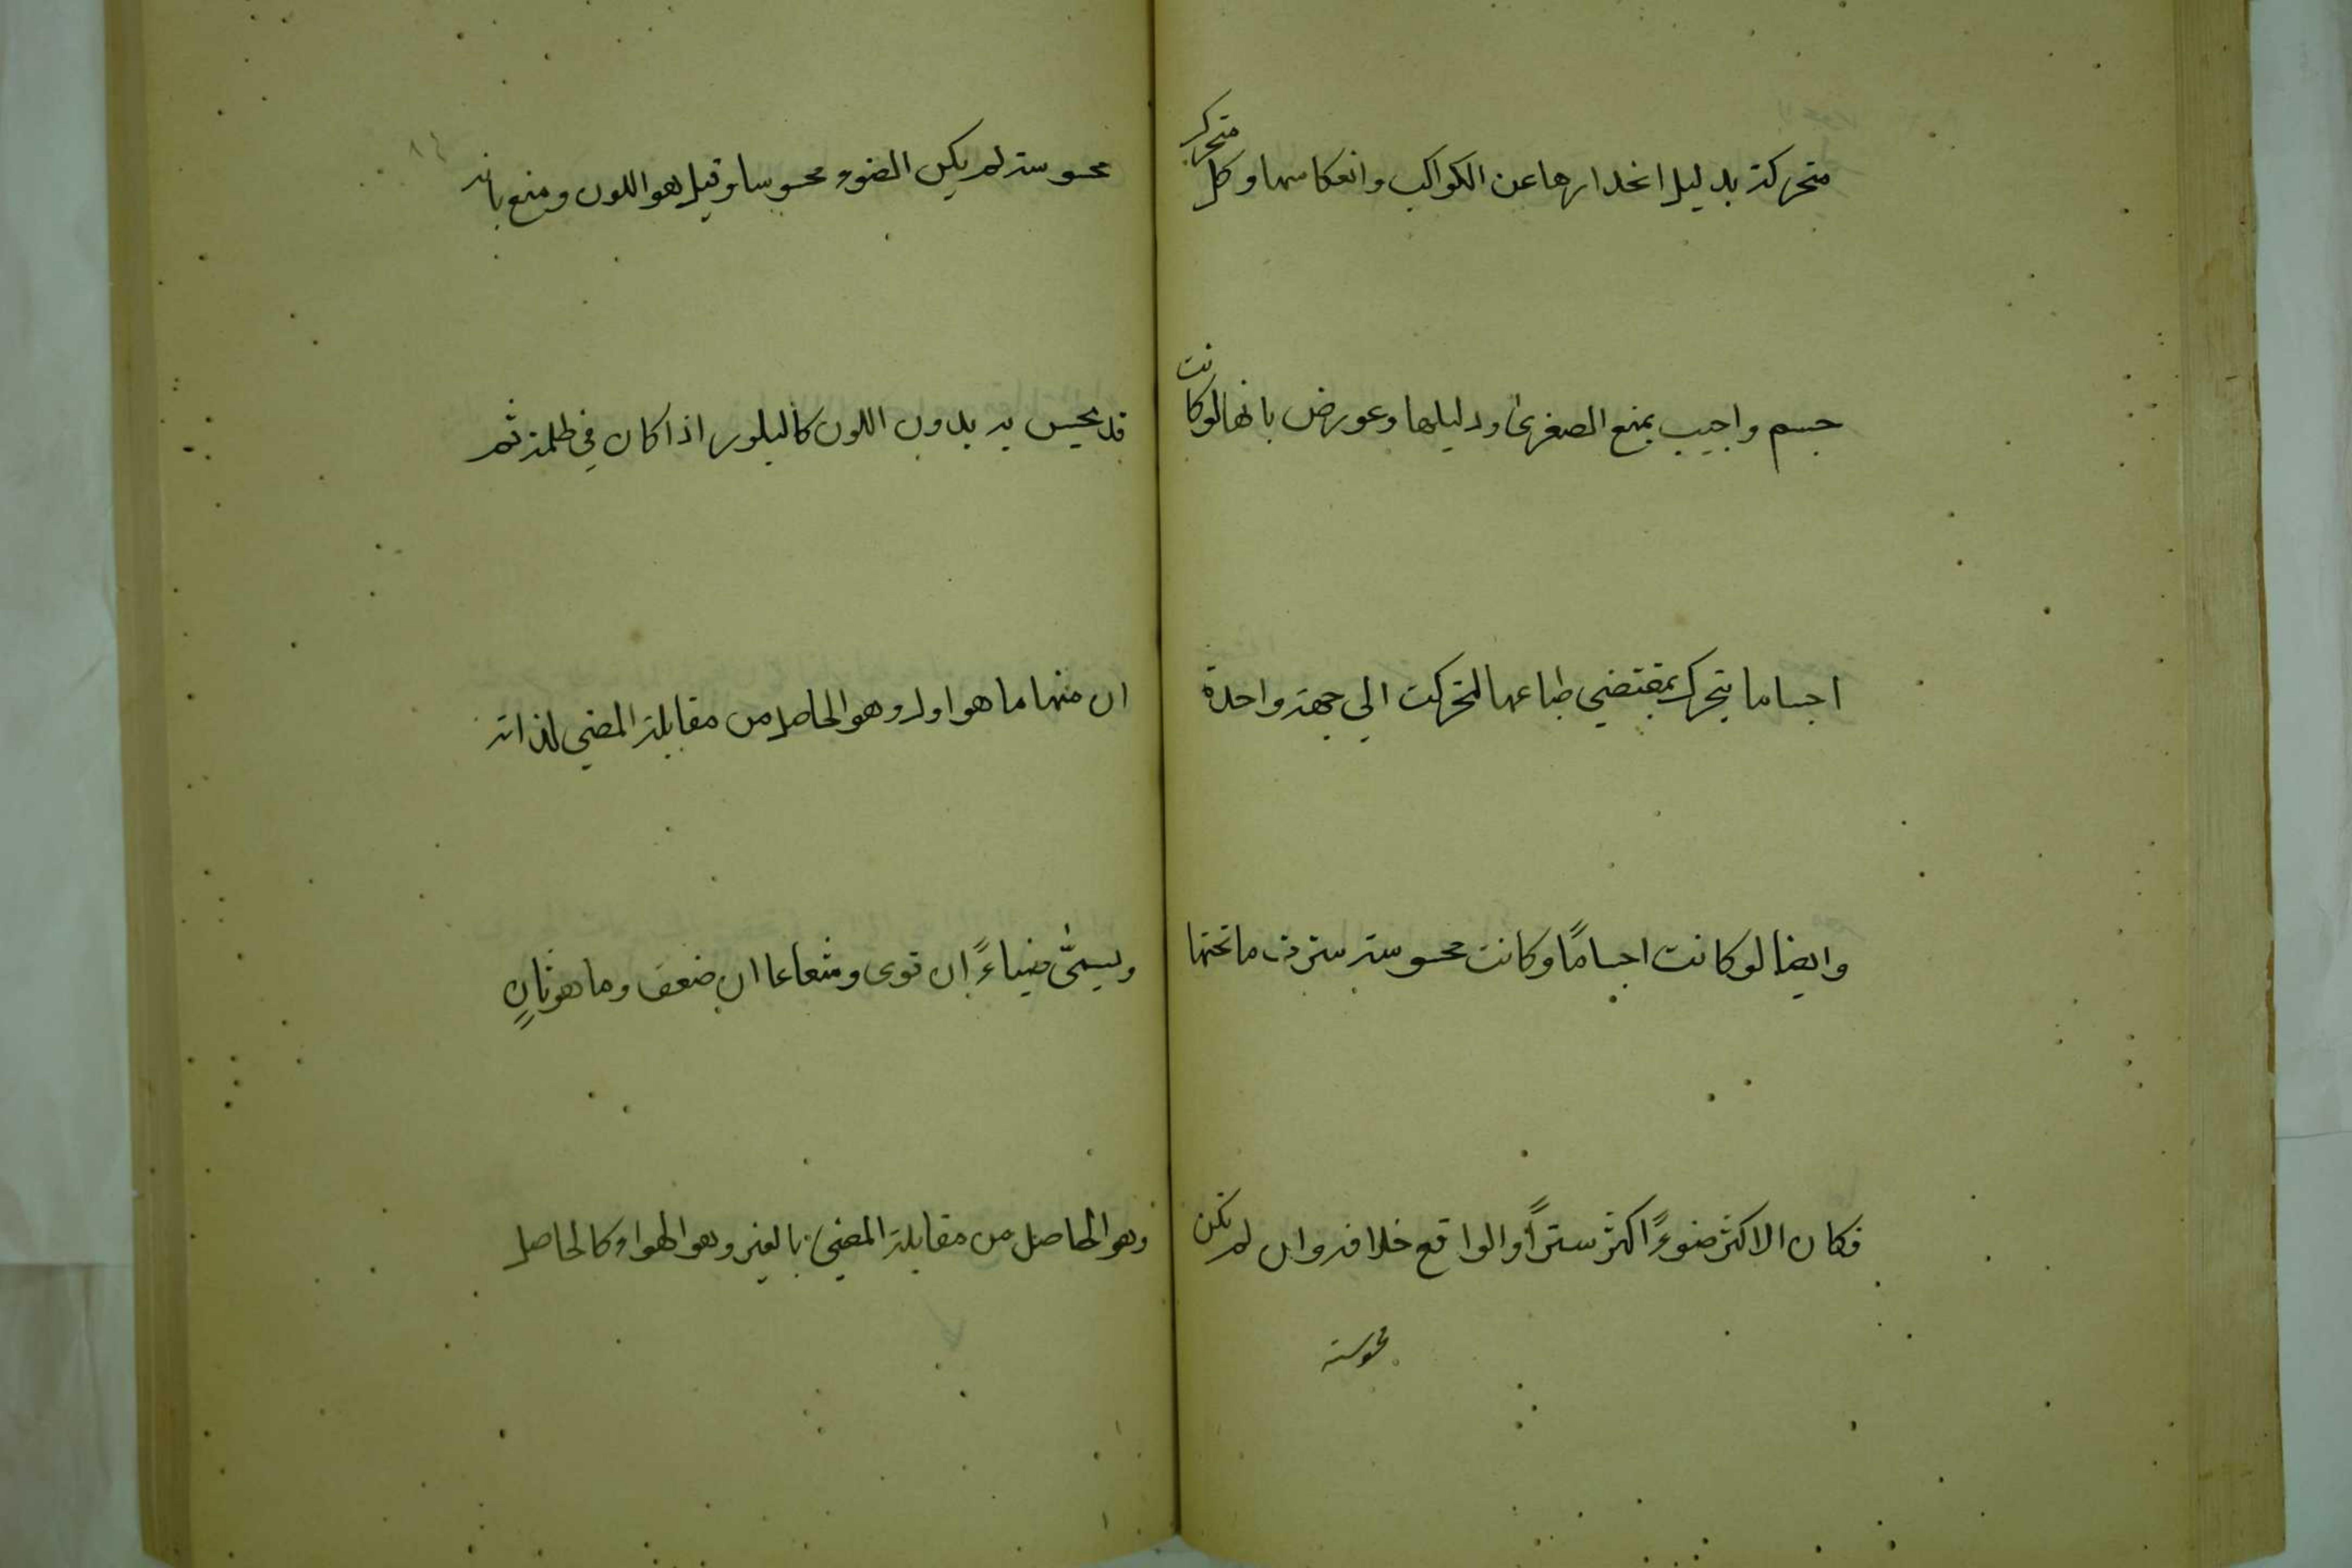 متحركة بدليل انحدارها عن الكواكب وانعكاسها وكل متحرك
جسم واجيب بمنع الصغرى ودليلها وعورض بانها لوكانت
اجساما يتحرك بمقتضي طباعها لتحركت الي جهة واحدة
وايضا لو كانت اجسامًا وكانت محسوسة سترت ما تحتها
فكان الاكثر ضوءً اكثر ستراً والواقع خلافه وان لم تكن
محسوسة
محسوسة لم يكن الضوء محسوسا وقيل هو اللون ومنع بانه
قد يحس به بدون اللون كالبلور اذا كان في ظلمة ثم
ان منها ما هو اول وهو الحاصل من مقابلة المضي لذاته
ويسمّى ضياءً ان قوى وشعاعا ان ضعف وما هو ثانٍ
وهو الحاصل من مقابلة المضي بالغير وهو الهواء كالحاصل